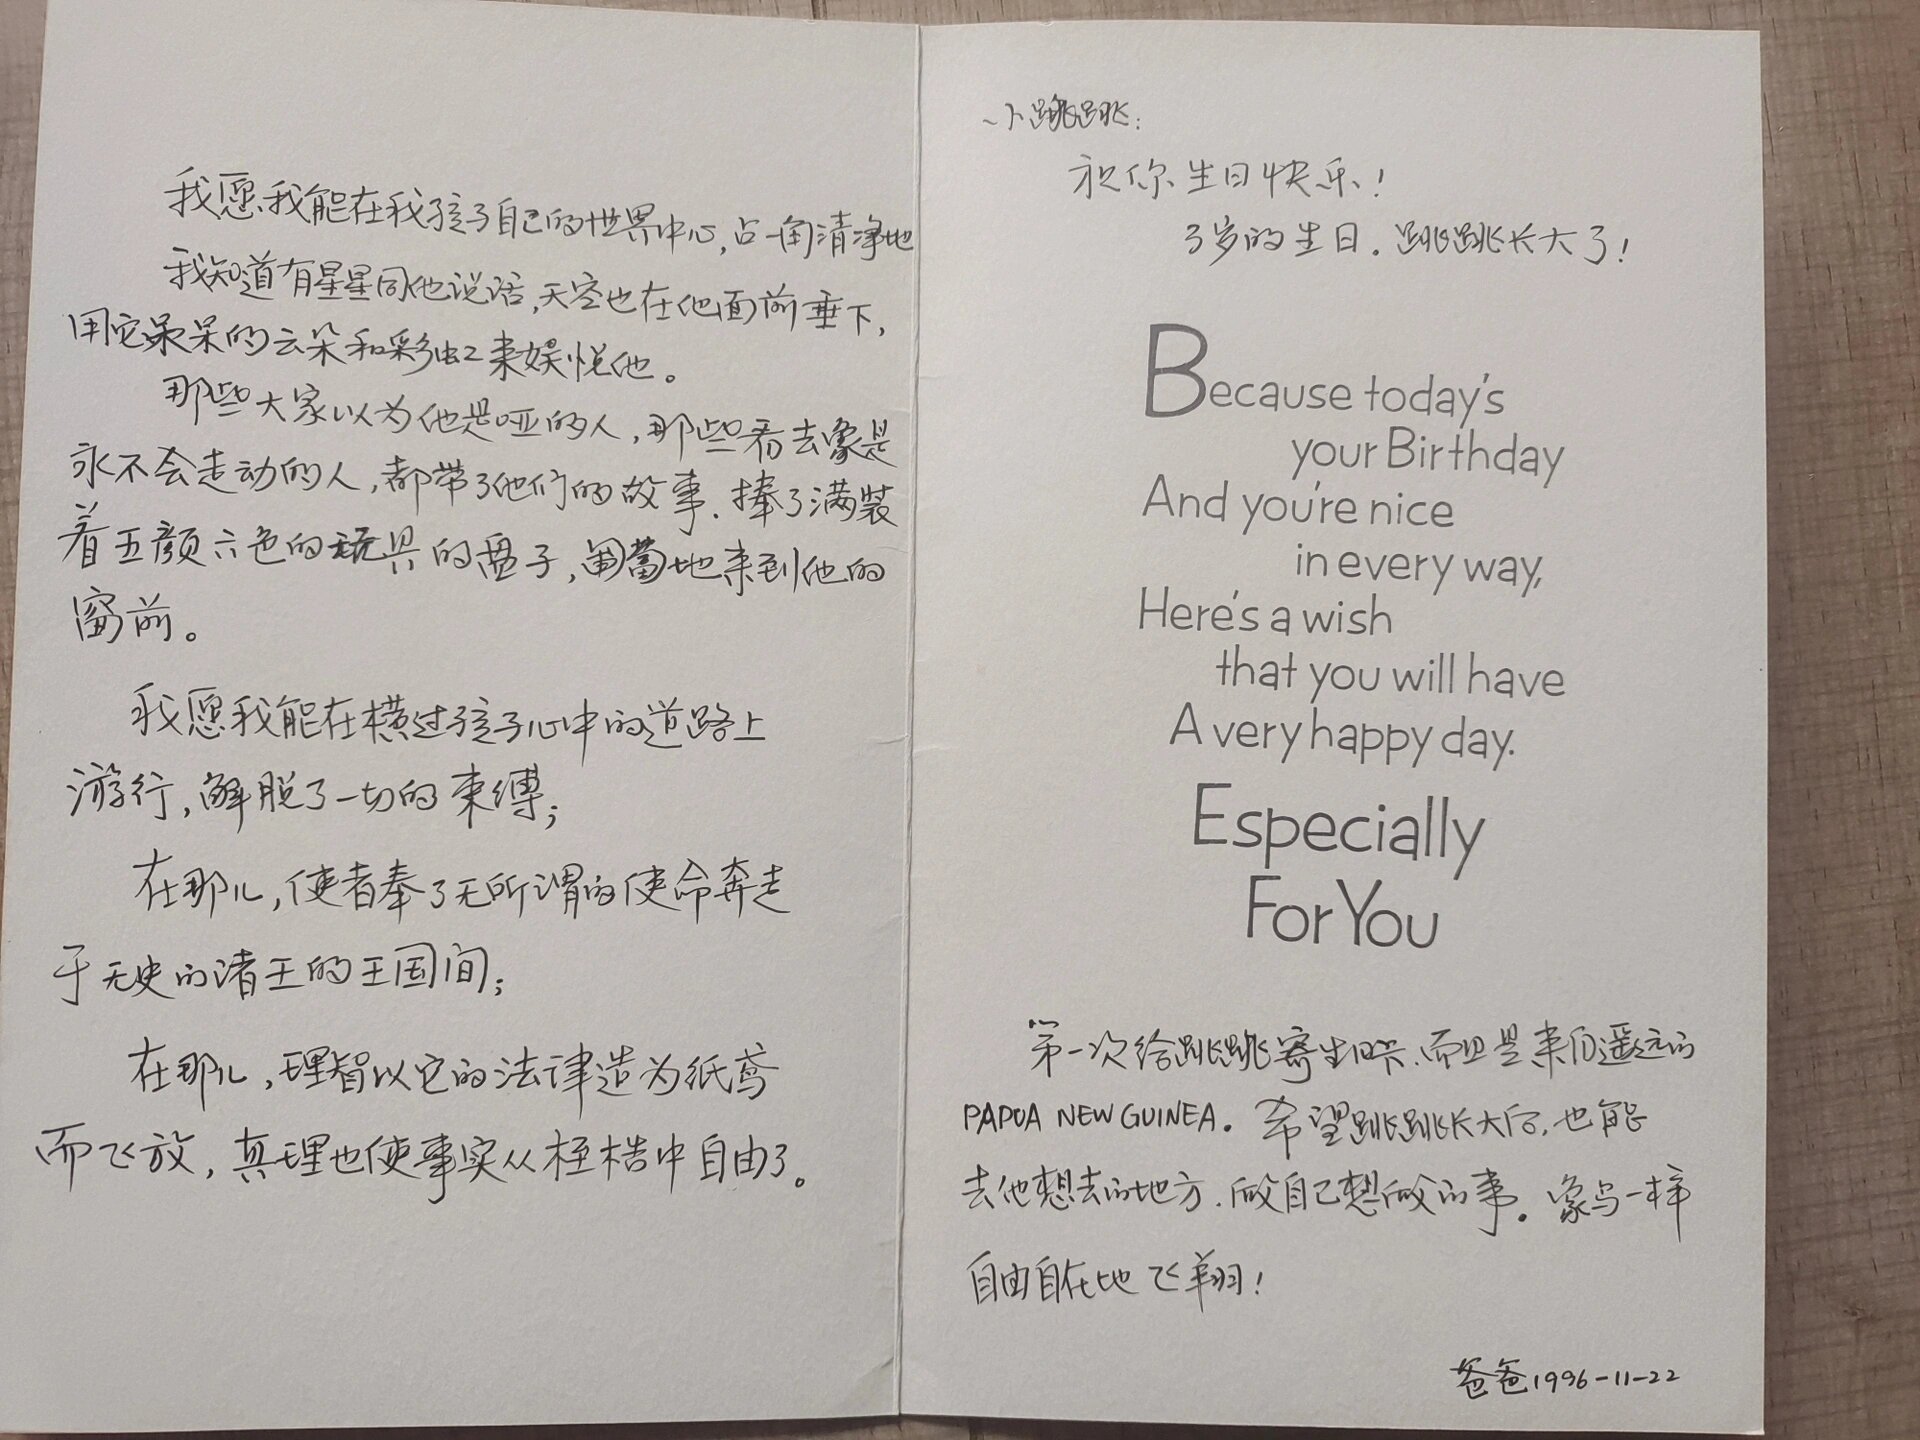 我愿我能在我孩子自己的世界中心,占一角清净地
我知道有星星同他说话,天空也在他面前垂下,
用它呆呆的云朵和彩虹来娱悦他。
那些大家以为他是哑的人,那些看去象是
永不会走动的人,都带了他们的故事.捧了满装
着五颜六色的玩具的盘子,匍匐地来到他的
窗前。
我愿我能在横过孩子心中的道路上
游行,解脱了一切的束缚;
在那儿,使者奉了无所谓的使命奔走
于无史的诸王的王国间;
在那儿,理智以它的法律造为纸鸢
而飞放,真理也使事实从桎梏中自由了。
小跳跳:
祝你生日快乐!
3岁的生日.跳跳长大了!
Because today's
your Birthday
And you're nice
in every way,
Here's a wish
that you will have
A very happy day.
Especially
For You
第一次给跳跳寄生日卡.而且是来自遥远的
PAPUA NEW GUINEA。希望跳跳长大后,也能
去他想去的地方.做自己想做的事。象鸟一样
自由自在地飞翔!
爸爸1996-11-22